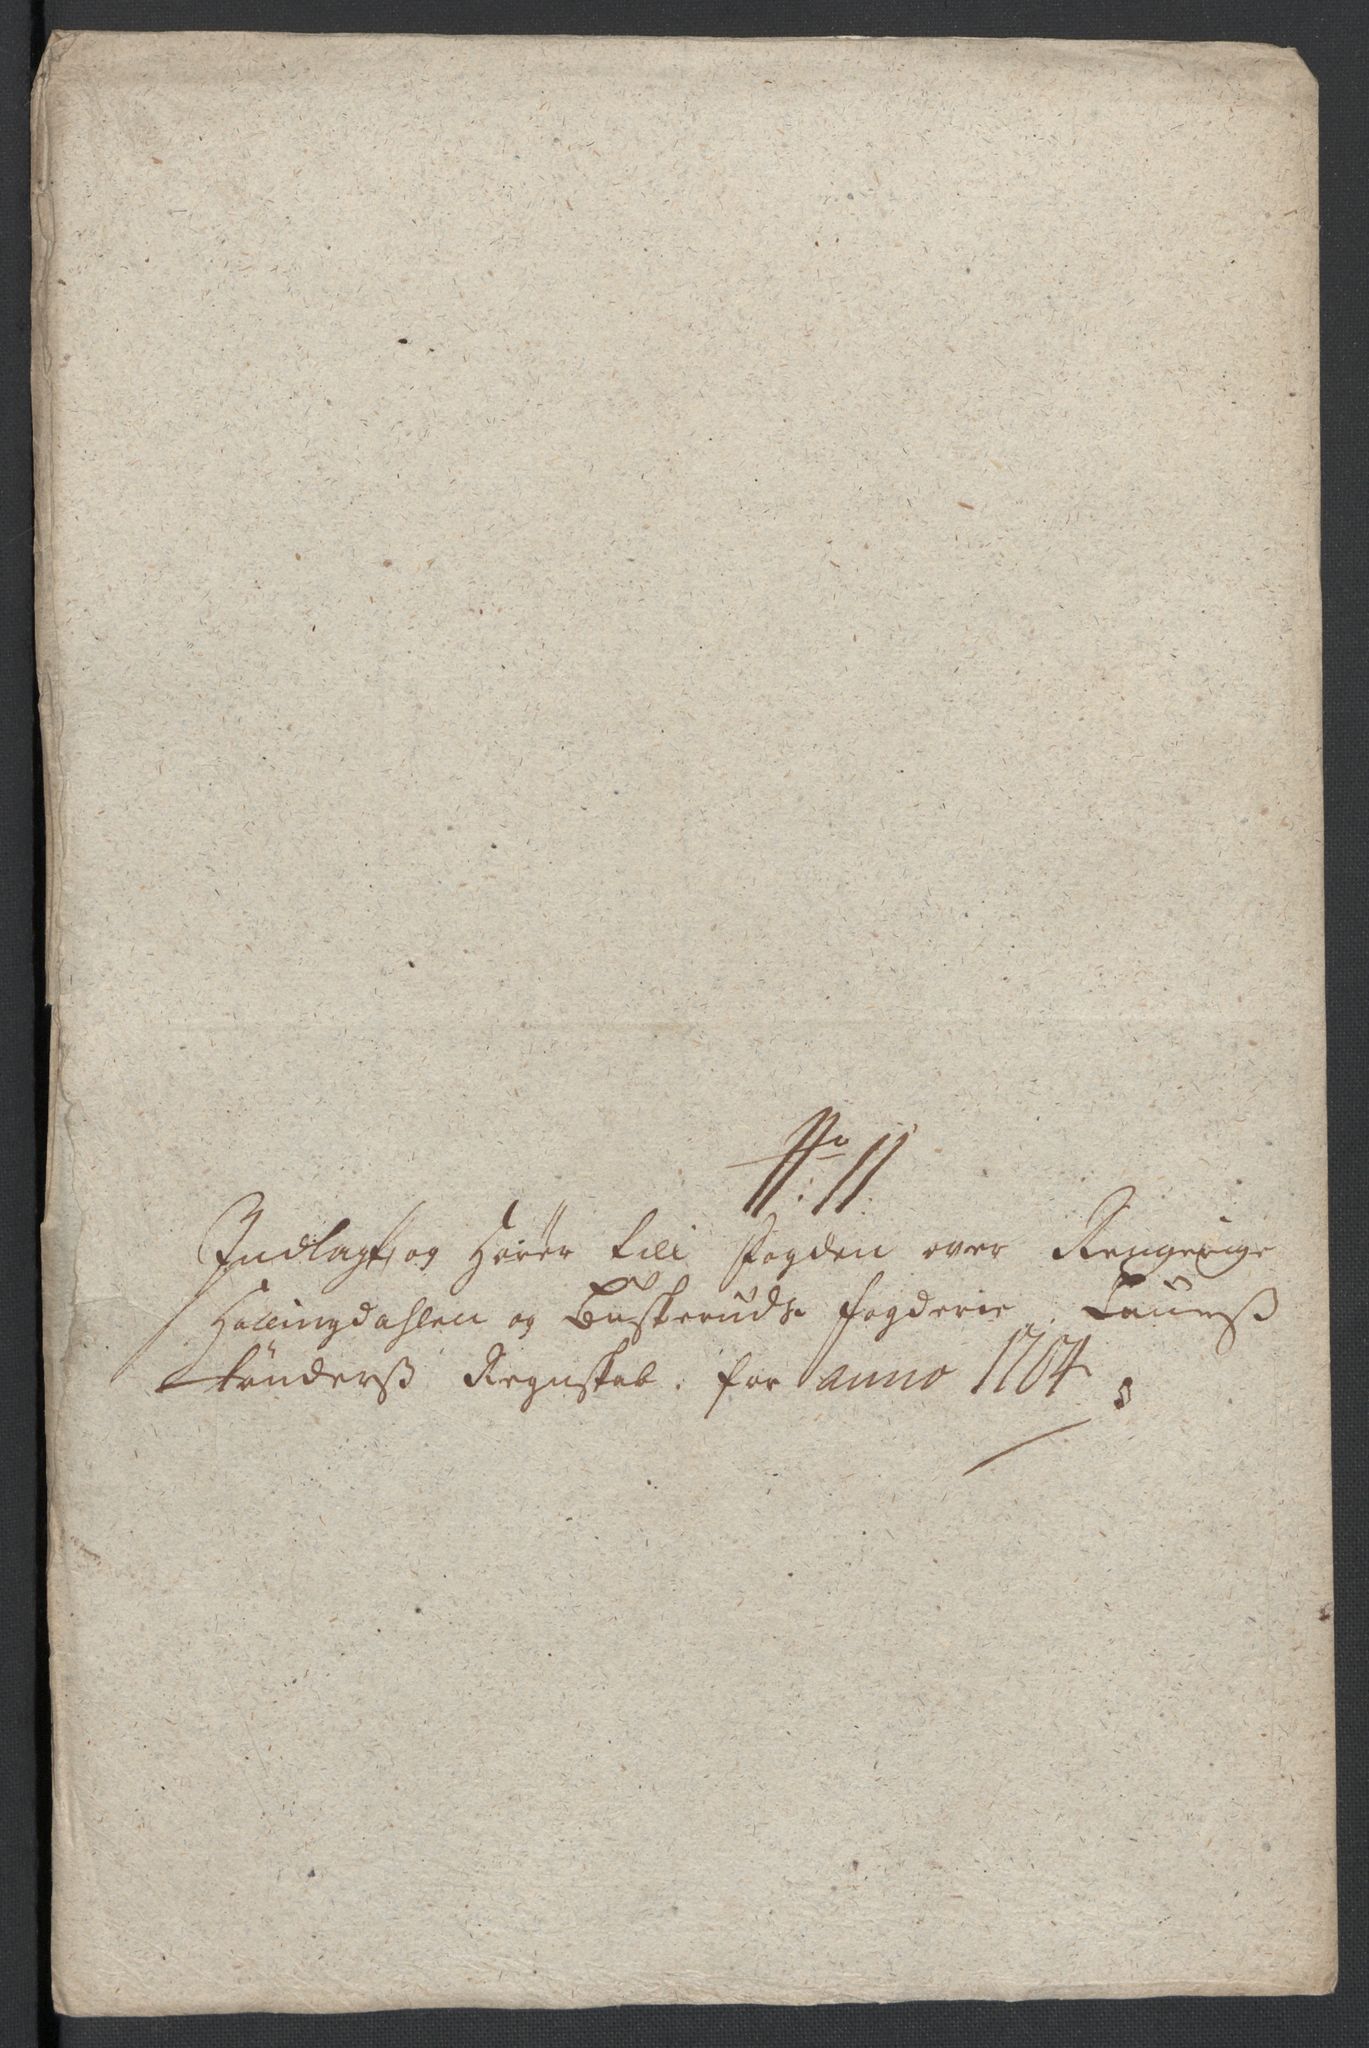 No: 11.
Indlagt, og Hører till Fogden over Ringerige
Hallingdahlen og Buskeruds. fogderie. Lauerß
tønderß Regnskab. for anno 1704